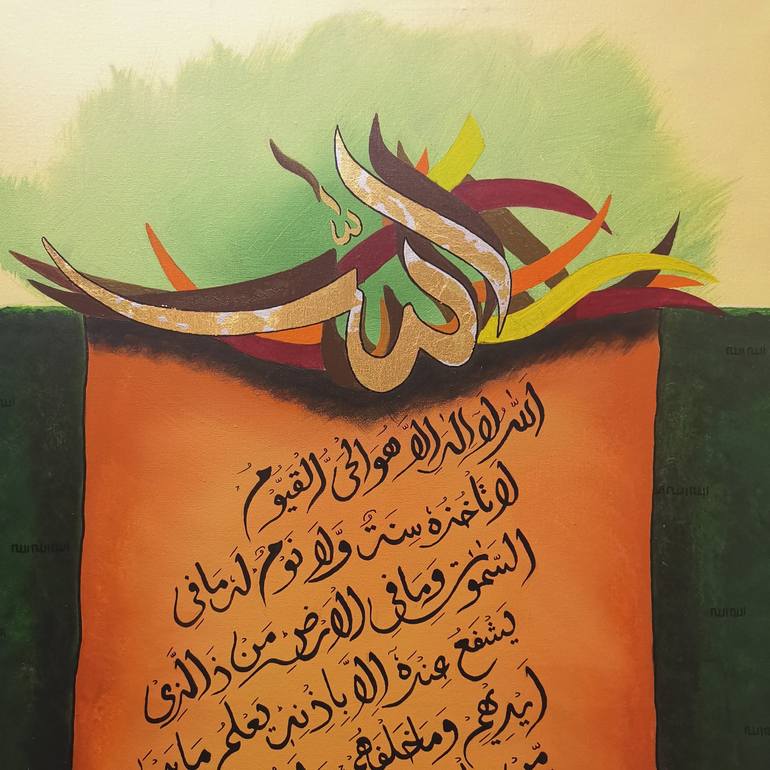 الله
اللہ لا الہ الا ھو الحی القیوم
لا تاخذہ سنة ولا نوم لہ ما فی
السموت وما فی الارض من ذا الذی
یشفع عندہ الا باذنہ یعلم ما بین
ایدیھم وما خلفھم